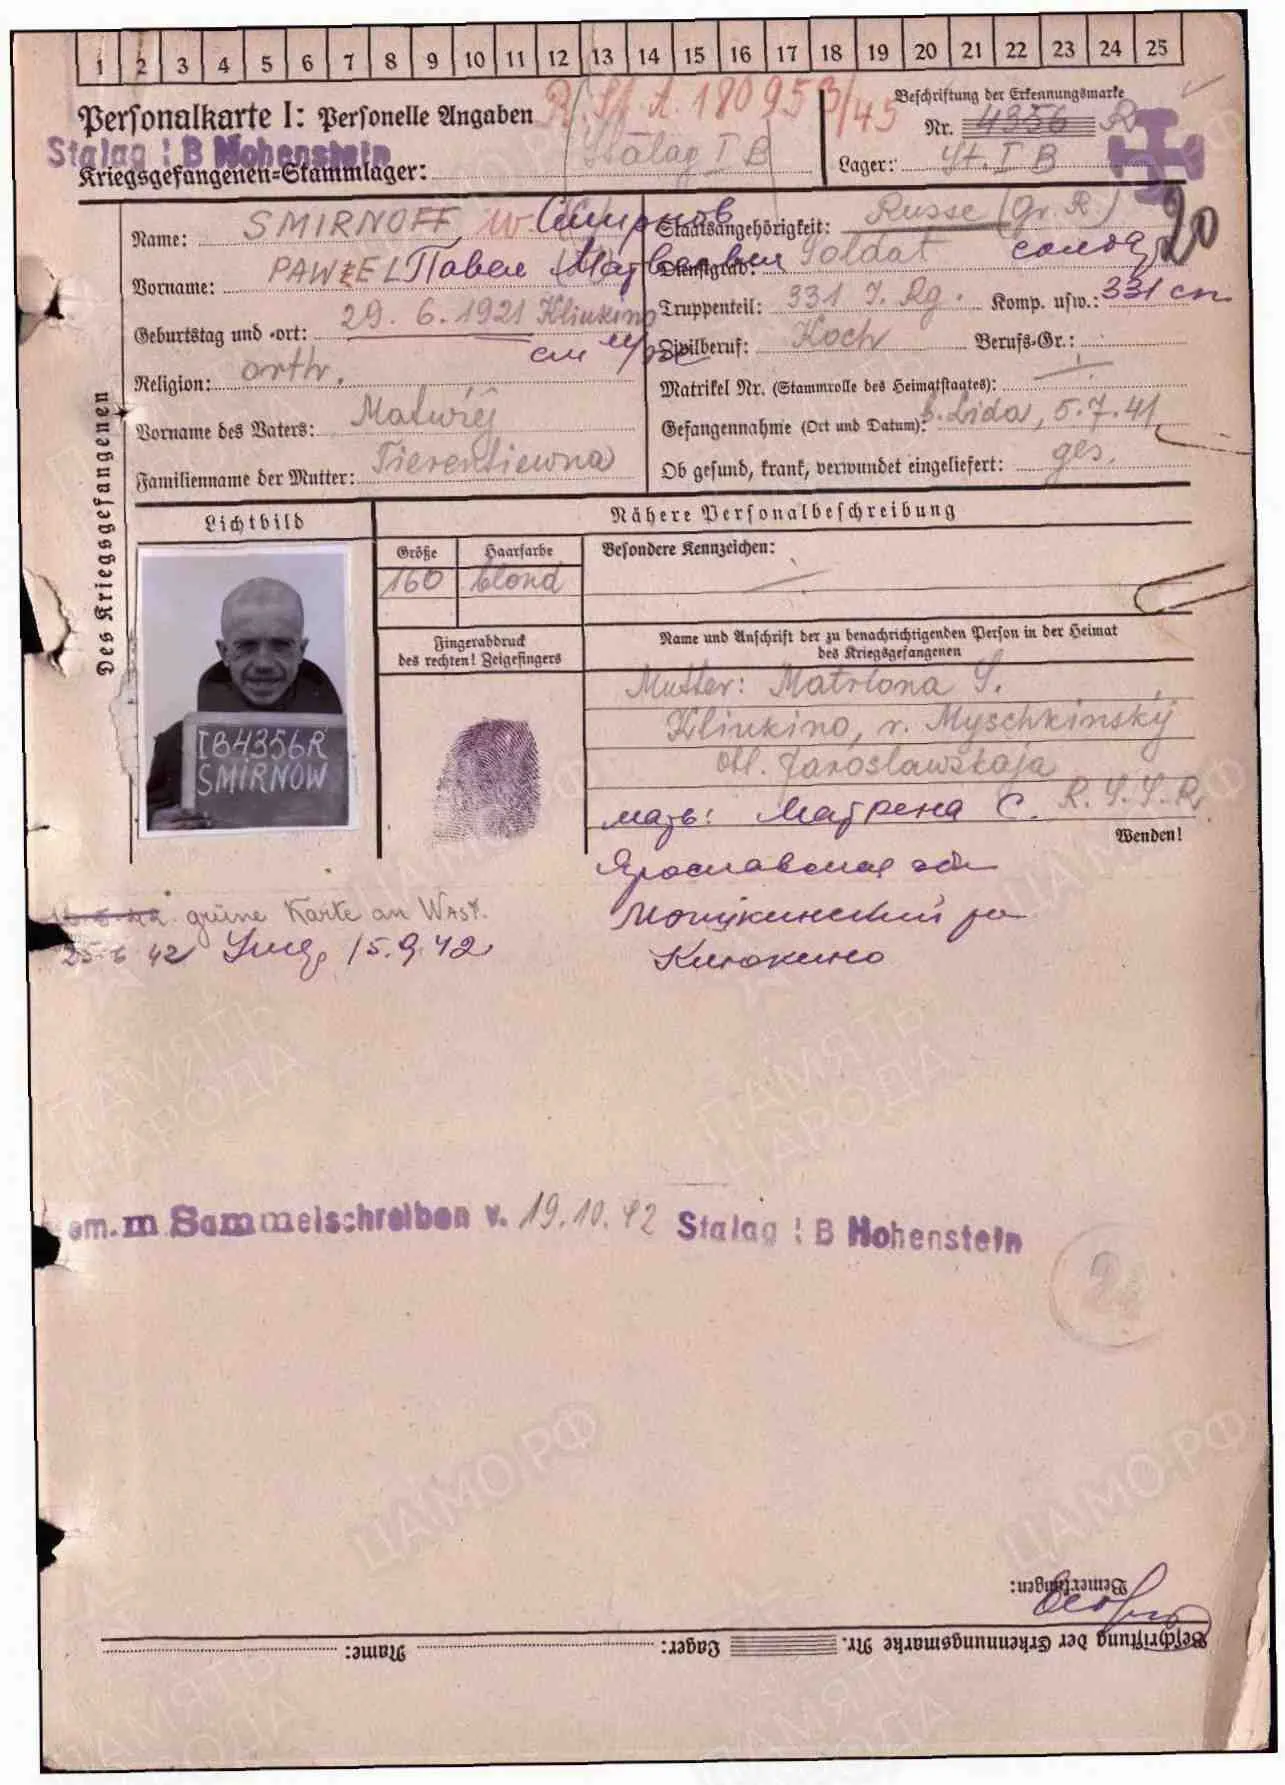 1 2 3 4 5 6 7 8 9 10 11 12 13 14 15 16 17 18 19 20 21 22 23 24 25
Personalkarte I: Personelle Angaben
R. St. A. 180953/45
Beschriftung der Erkennungsmarke
Nr. 4356 R
Stalag I B Hohenstein
Kriegsgefangenen-Stammlager: Stalag I B
Lager: St. I B
Des Kriegsgefangenen
Name: SMIRNOFF w Смирнов
Vorname: PAWEL Павел Матвеевич
Geburtstag und -ort: 29. 6. 1921 Kliukino
см
Religion: orth.
Vorname des Vaters: Matwij
Familienname der Mutter: Tierentiewna
Staatsangehörigkeit: Russe (Gr. R)
20
Dienstgrad: Soldat солдат
Truppenteil: 331 J. Rg. Komp. usw.: 331 сп
Zivilberuf: Koch Berufs-Gr.:
Matrikel Nr. (Stammrolle des Heimatstaates):
Gefangennahme (Ort und Datum): b. Lida, 5.7.41
Ob gesund, krank, verwundet eingeliefert: ges.
Lichtbild
Nähere Personalbeschreibung
Größe Haarfarbe Besondere Kennzeichen:
160 blond
IB4356R
SMIRNOW
Fingerabdruck
des rechten! Zeigefingers
Name und Anschrift der zu benachrichtigenden Person in der Heimat
des Kriegsgefangenen
Mutter: Matriona S.
Kliukino, r. Myschkinskÿ
obl. Jaroslawskaja
R. S. S. R.
мать: Матрена С.
Wenden!
Ярославская обл
Мошкинский р-н
Клюкино
grüne Karte an WASt.
25.6 42 15.9.42
em. m Sammelschreiben v. 19.10.42 Stalag I B Hohenstein
2
Bemerkungen:
Beschriftung der Erkennungsmarke Nr. Lager: Name:
ПАМЯТЬ НАРОДА
ЦАМО.РФ